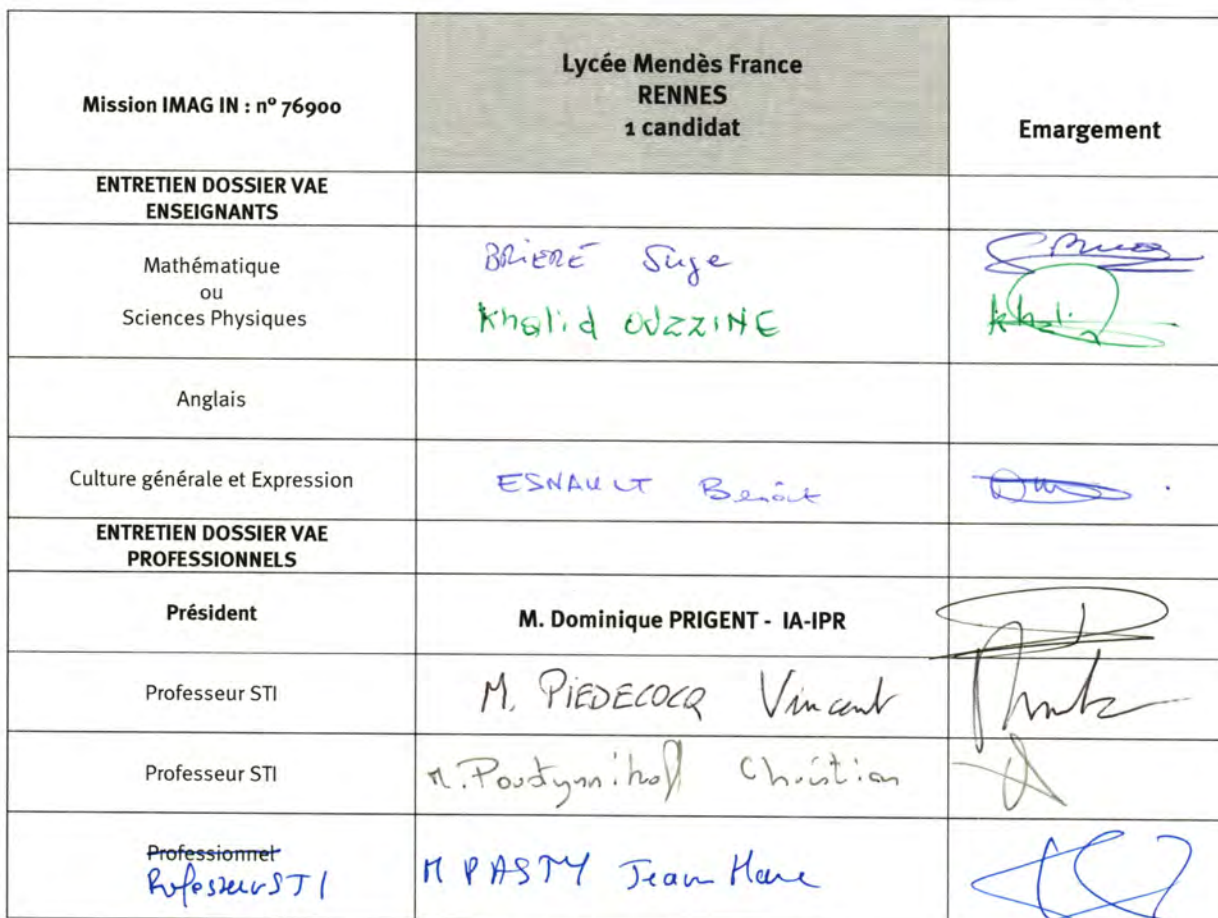 Mission IMAG IN : nº 76900
Lycée Mendès France
RENNES
1 candidat
Emargement
ENTRETIEN DOSSIER VAE
ENSEIGNANTS
Mathématique
ou
Sciences Physiques
BRIERE Serge
Khalid OUZZINE
Khali
Anglais
Culture générale et Expression
ESNAULT Benoît
ENTRETIEN DOSSIER VAE
PROFESSIONNELS
Président
M. Dominique PRIGENT - IA-IPR
Professeur STI
M. PIEDECOCQ Vincent
Professeur STI
Christian
Professionnel
Professeur STI
M PASTY Jean Marc